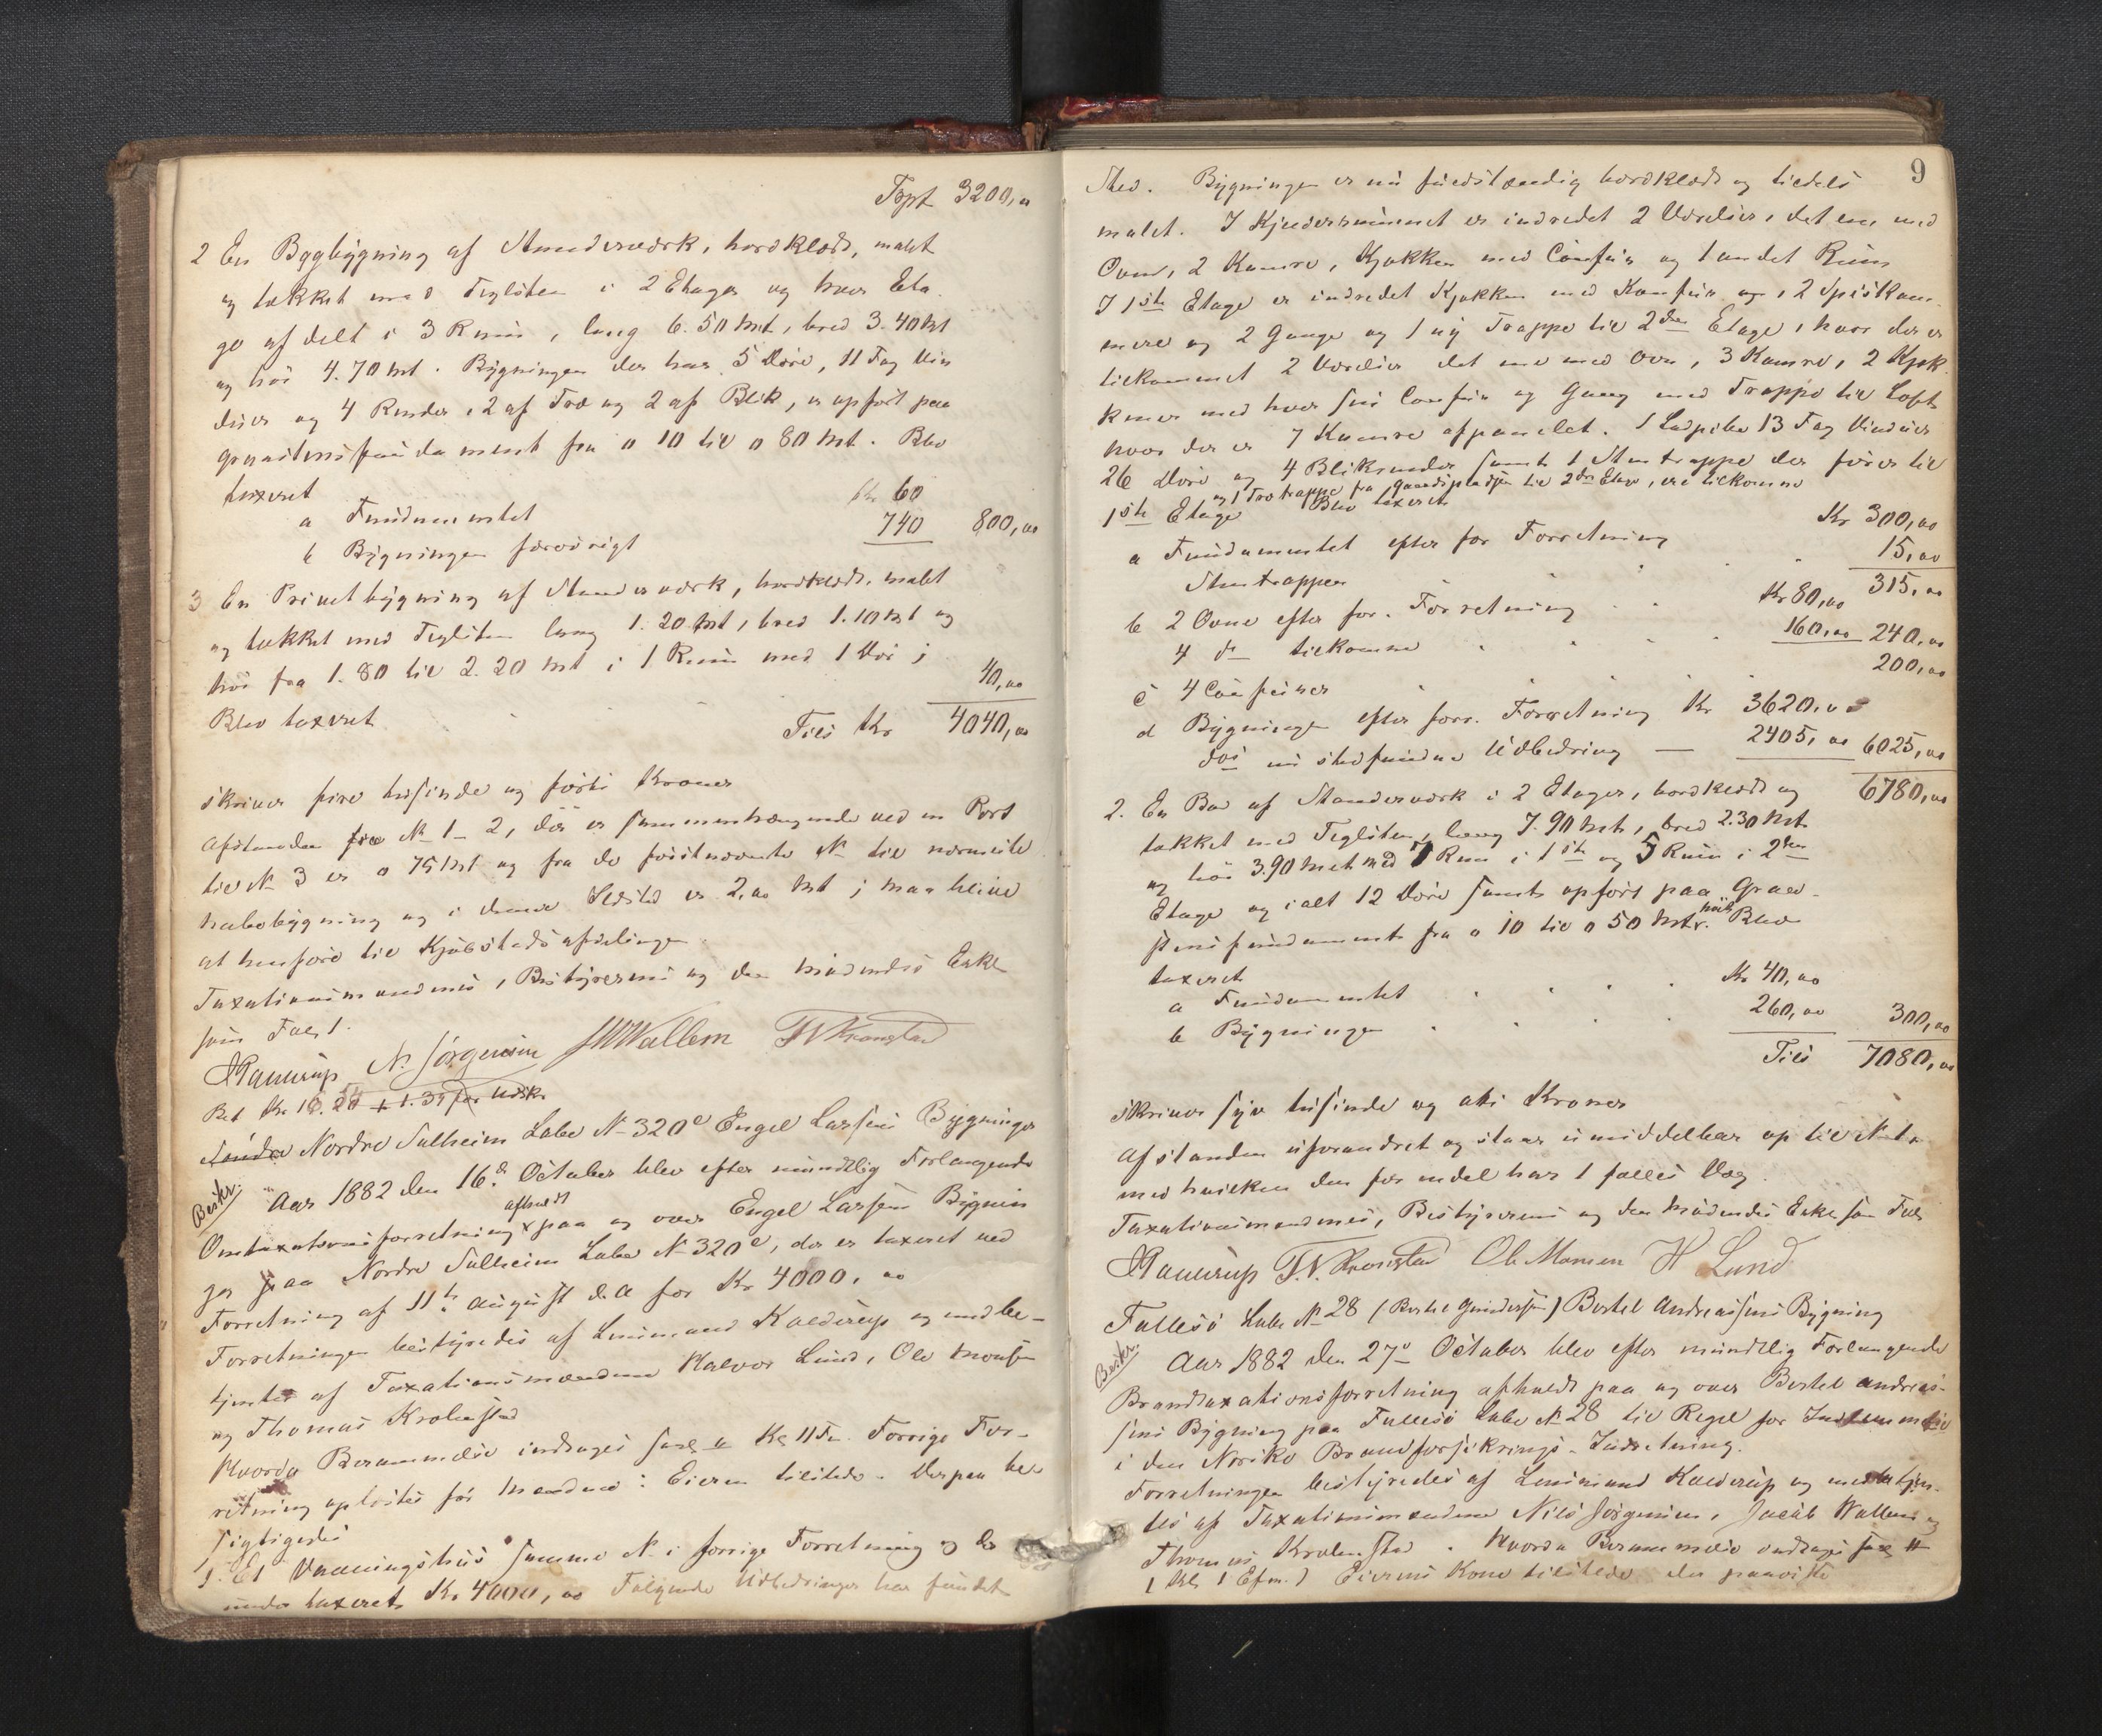 Trpt 3200,00
2 En Bagbygning af Stenderværk, bordklædt, malet
og tækket med Teglsten i 2 Etager og hver Eta
ge afdelt i 3 Rum, lang 6.50 Mt, bred 3.40 Mt
og høi 4.70 Mt. Bygningen der har 5 Døre, 11 Fag Vin
duer og 4 Render, 2 af Træ og 2 af Blik, er opført paa
graastensfundament fra 0 10 til 0 80 Mt. Blev
taxeret
a Fundamentet Kr 60
b Bygningen forøvrigt 740 800,00
3 En Privetbygning af Stenderværk, bordklædt, malet
og tækket med Teglsten lang 1.20 Mt, bred 1.10 Mt og
høi fra 1.80 til 2.20 Mt i 1 Rum med 1 Dør;
Blev taxeret 40,00
Tils Kr 4040,00
skriver fire tusinde og førti Kroner
Afstanden fra № 1-2, der er sammenhængende ved en Port
til № 3 er 0 75 Mt og fra de førstnævnte № til nærmeste
nabobygning og i denne Ildsted er 2,00 Mt; maa blive
at henføre til Kjøbstadsafdelingen.
Taxationsmændenes, Bestyrerens og den mødendes Eske
som Fol. 1.
Kaurup N. Jørgensen JWWallem T N Kronstad
Bet Kr 16.20 + 1.35 for Udskr
Søndre Nordre Salheim Labe № 320e Engel Larsens Bygninger
Beskr. Aar 1882 den 16de October blev efter mundtlig Forlangende
afholdt
Omtaxationsforretning x paa og over Engel Larsens Bygnin
ger paa Nordre Salheim Labe № 320e, der er taxeret ved
Forretning af 11te August d.A for Kr 4000,00
Forretningen bestyredes af Lensmand Kaldrup og medbe-
tjentes af Taxationsmændene Halvor Lund, Ole Monsen
og Thomas Krohnstad
Hvorda Berammelse indtages Forrige For-
retning oplæstes for Mændene: Eieren tilstede. Derpaa be
sigtigedes
1. Et Vaaningshus samme № i forrige Forretning og der
under taxeret Kr 4000,00 Følgende Udbedringer har fundet
9
Sted. Bygningen er nu fuldstændig bordklædt og tildels
malet. I Kjelderrummet er indredet 2 Værelser, det ene med
Ovn, 2 Kamre, Kjøkken med Comfur og 1 andet Rum
I 1ste Etage er indredet Kjøkken med Komfur og 2 Spiskam-
mere og 2 Gange og 1 ny Trappe til 2den Etage, hvor der er
tilkommet 2 Værelser det ene med Ovn, 3 Kamre, 2 Kjøk
kener med hver sin Comfur og Gang med Trappe til Loft
hvor der er 7 Kamre afpanelet. 1 Ladpibe 13 Fag Vinduer
26 Døre og 4 Blikrender samt 1 Stentrappe der fører til
og 1 Trætrappe fra gaardspladsen til 2den Etage, ere tilkomne
1ste Etage Blev taxeret
a Fundamentet efter for Forretning Kr 300,00
Stentrappen 15,00 315,00
b 2 Ovne efter for. Forretning Kr 80,00
4 do tilkomne 160,00 240,00
c 4 Comfurer 200,00
d Bygningen efter forr. Forretning Kr 3620,00
dos nu stedfundne Udbedring — 2405,00 6025,00
6780,00
2. En Bod af Stenderværk i 2 Etager, bordklædt og
tækket med Teglsten, lang 7.90 Mt, bred 2.30 Mt.
og høi 3.90 Mt med 7 Rum i 1ste og 5 Rum i 2den
Etage og ialt 12 Døre samt opført paa Graa-
stensfundament fra 0 10 til 0 50 Mtr. høit Blev
taxeret
a Fundamentet Kr 40,00
b Bygningen 260,00 300,00
Tils 7080,00
skriver syv tusinde og otti Kroner
Afstanden uforandret og staar umiddelbar op til № 1.
med hvilken den for endel har 1 fælles Væg.
Taxationsmændenes, Bestyrerens og den mødendes Eske som Fol
Kaurup T.N. Kronstad Ole Monsen H Lund
Fallesø Labe № 28 (Bertel Gundersen) Bertel Andreassens Bygning
Beskr. Aar 1882 den 27de October blev efter mundtlig Forlangende
Brandtaxationsforretning afholdt paa og over Bertel Andreas-
sens Bygning paa Fallesø Labe № 28 til Regel for Indlemmelse
i den Norske Brandforsikrings-Indretning.
Forretningen bestyredes af Lensmand Kaldrup og medbetjen-
tes af Taxationsmændene Nils Jørgensen, Jacob Wallem og
Thomas Krohnstad. Hvorda Berammelse indtages
(Kl. 1 Efm.) Eierens Kone tilstede der paaviste